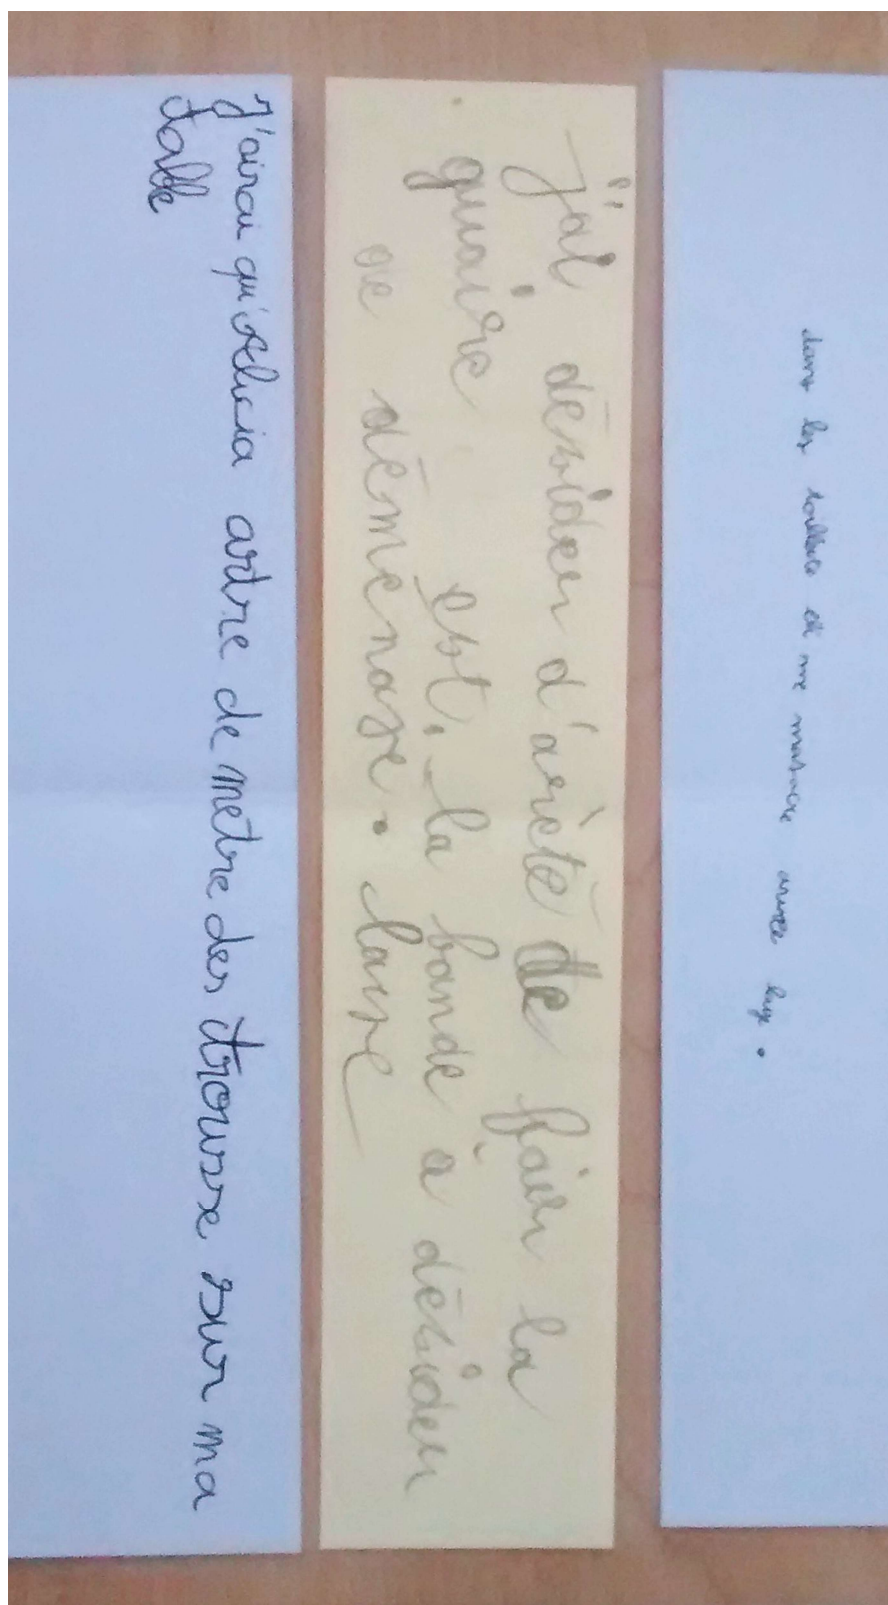 dans les toillete et me masacre avece luy.
j'ai désider d'arèté de fair la
guaire est, la bande à désider
de déménase. laure
J'airai qu'Alicia artre de metre des trousse sur ma
table